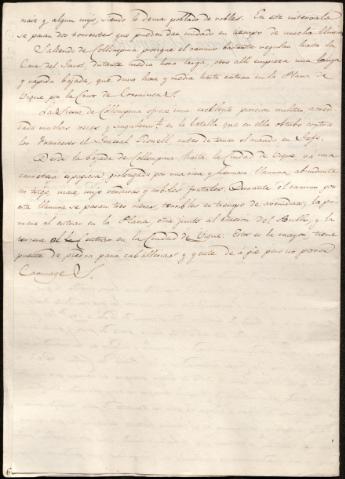 maiz y algun mijo, siendo lo demas poblado de robles. En este intervalo
se pasan dos torrentes que pueden dar cuidado en tiempo de mucha lluvia
Saliendo de Collsuspina prosigue el camino bastante regular hasta la
Creu del distante media hora larga, pero alli empieza una larga
y rapida bajada, que dura hora y media hasta entrar en la Plana de
Vique por la de
La de Collsuspina ofrece una excelente posicion militar, acredi
tada muchas veces y en la batalla que en ella obtubo contra
los Franceses el General antes de tomar el mando en Gefe.
Desde la bajada de Collsuspina hasta la Ciudad de Vique va una
carretera prolongado por una rica y hermosa llanura, abundante
en trigo, maiz, mijo y arboles frutales. Durante el camino por
esta llanura se pasan tres rieras terribles en tiempo de avenidas; la pri
mera al entrar en la Plana, otra junto al del y la
tercera a la entrada en la Ciudad de Vique. Esta es la mayor, tiene
puente de piedra para caballerias y gente de á pie pero no para
Carruage